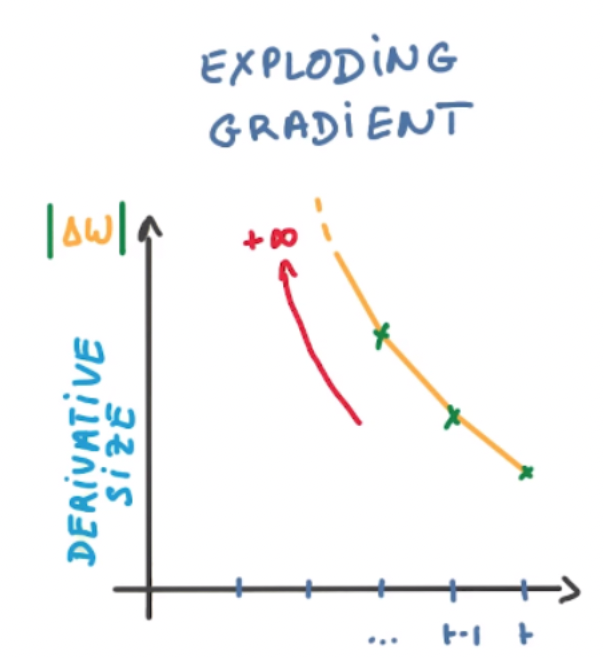 EXPLODING
GRADIENT
|ΔW|
+∞
DERIVATIVE
SIZE
... t-1 t